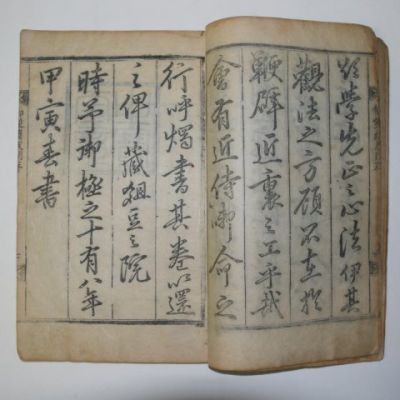 學先正之心法伊其
觀法之方顧不在於
鞭辟近裏之工乎哉
會有近侍命之
行呼燭書其卷以還
之俾藏俎豆之院
時予御極之十有八年
甲寅春書